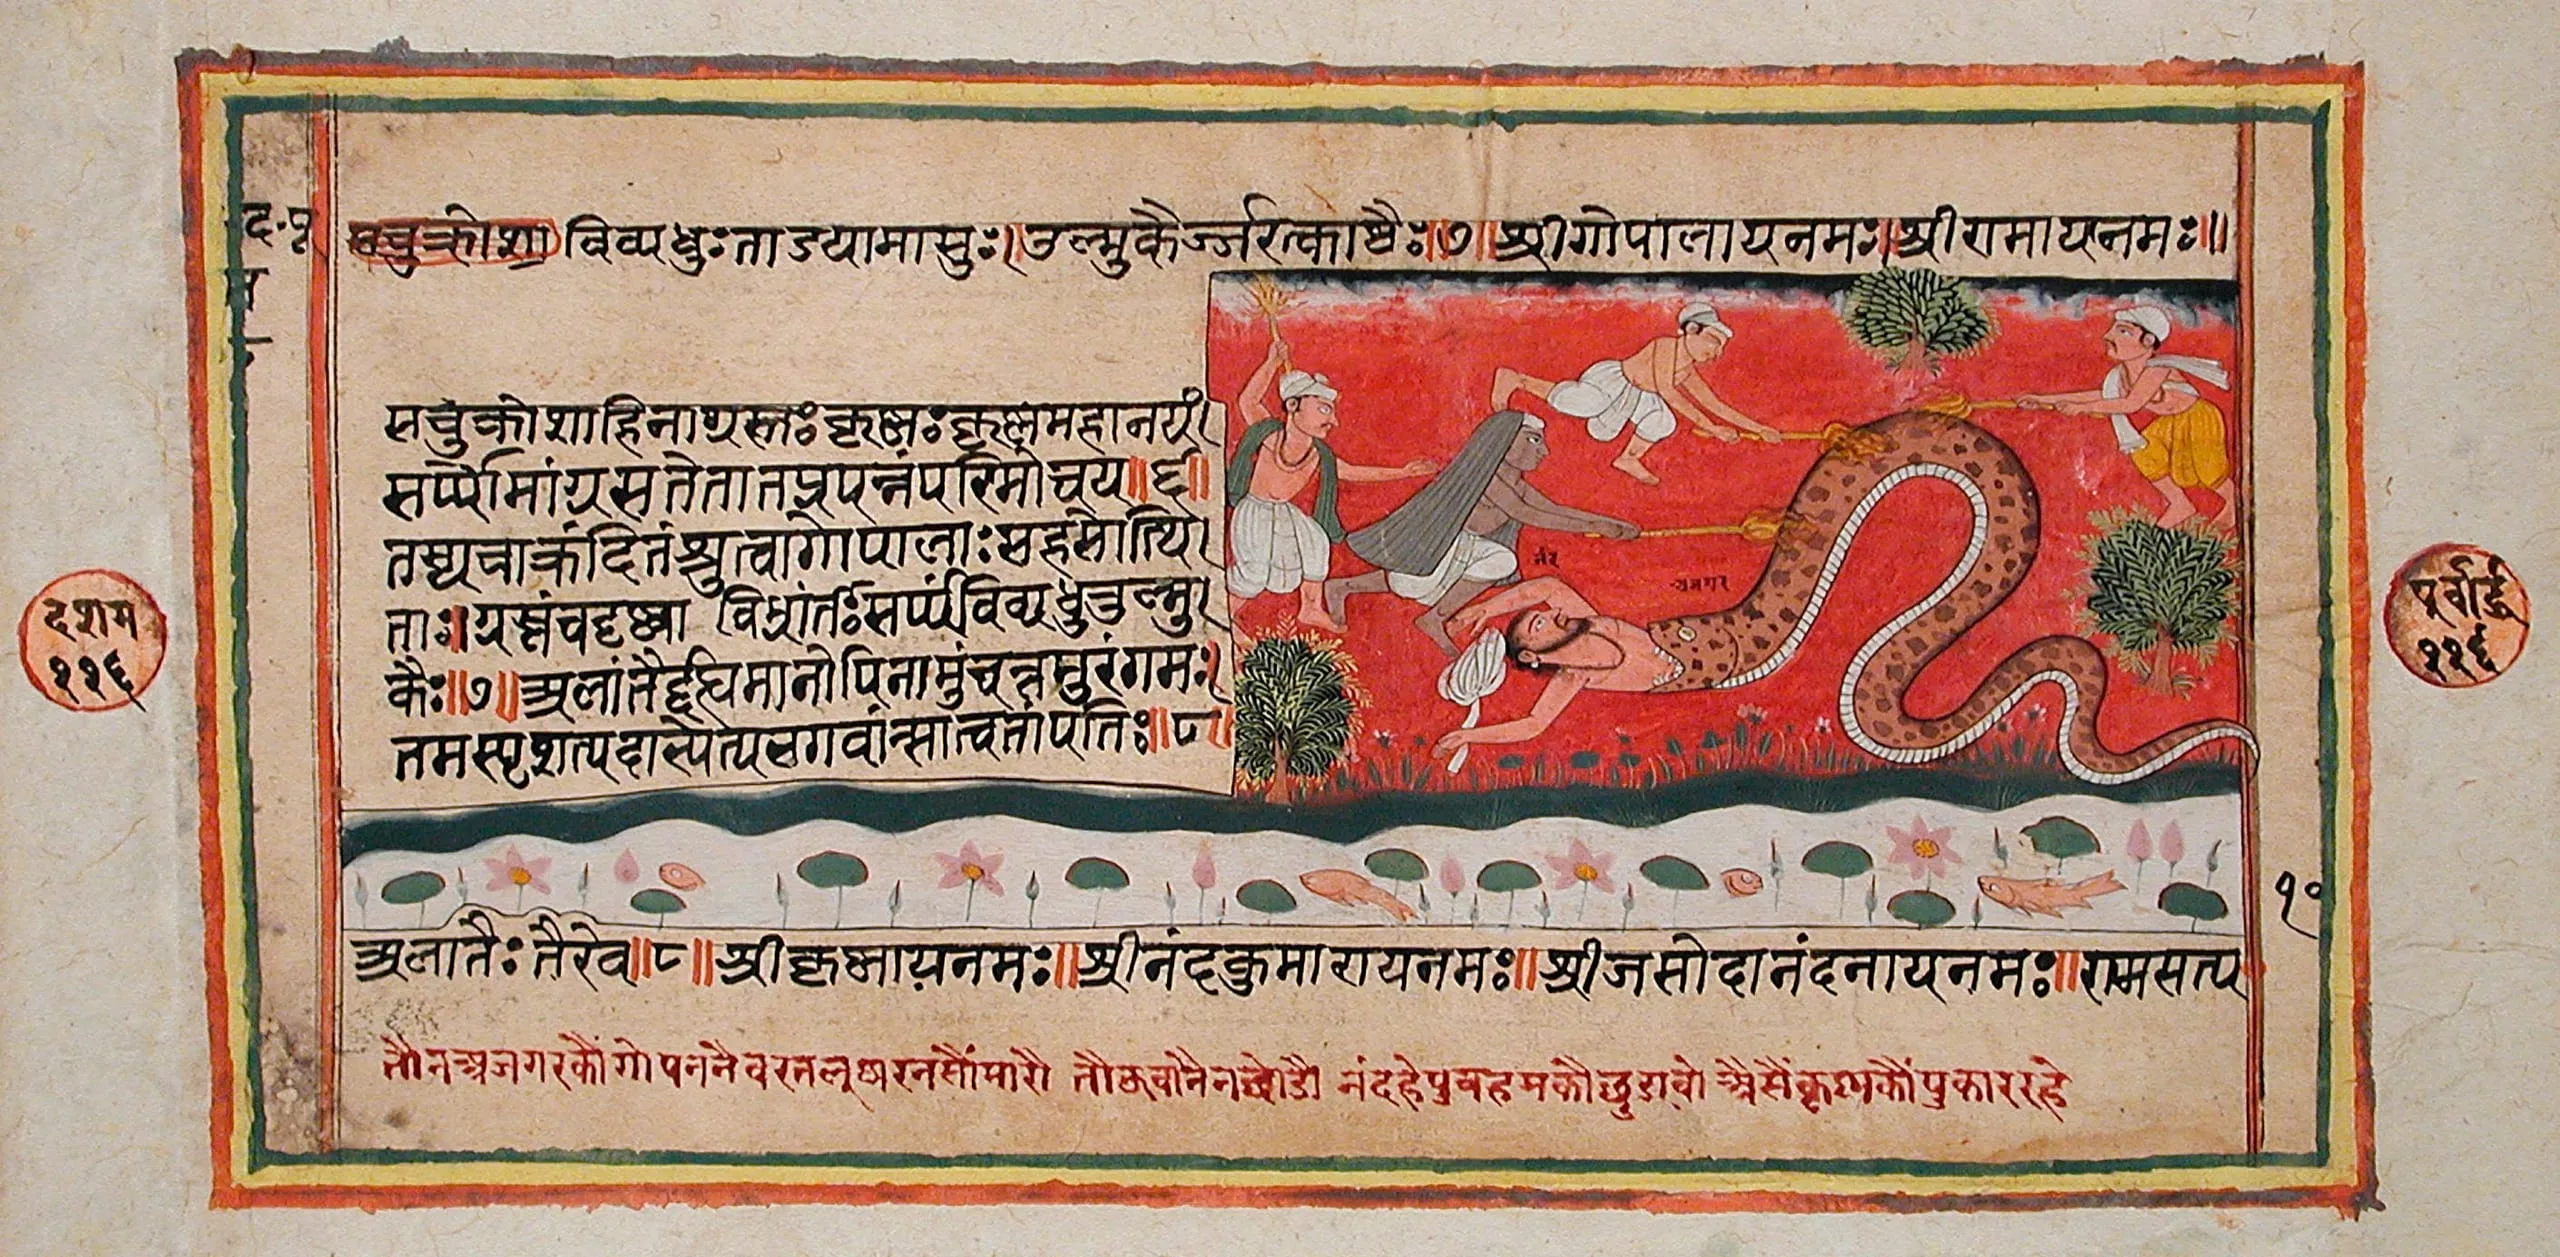 द.पू
सचुक्रोशा विव्यधुः ताडयामासुः। उल्मुकैर्ज्जरत्काष्ठैः॥७॥ श्रीगोपालायनमः। श्रीरामायनमः॥
सचुक्रोशाहिनाग्रस्तः कृष्णः कृष्णमहानयं।
सर्प्पोमांग्रसतेतातप्रपन्नंपरिमोचय॥६॥
तस्यचाक्रंदितंश्रुत्वागोपालाः सहसोत्थि।
ताः। ग्रस्तंचदृष्ट्वा विभ्रांतः सर्प्पंविव्यधुउल्मु।
कैः॥७॥ अलांतैर्द्दह्यमानोपिनामुंचत्तमुरंगमः।
तमस्पृशत्पदाभ्येत्यभगवांन्सात्वतांपतिः॥८॥
नंद
अजगर
दशम
११६
पूर्वार्द्ध
११६
१०
अलातैः तैरेव॥८॥ श्रीकृष्णायनमः॥ श्रीनंदकुमारायनमः॥ श्रीजसोदानंदनायनमः॥ रामसत्य
तौनअजगरकौंगोपननैवरतलूघरनसौंमारौ तौऊवानैनछोडौ नंदहेपुत्रहमकौछुडावो अैसैंकृश्नकौंपुकाररहे